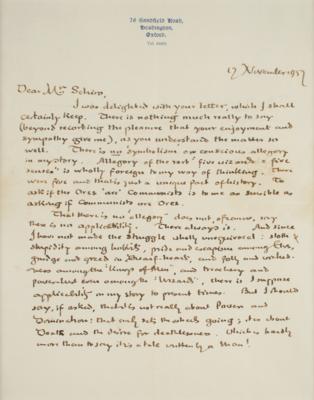 76 Sandfield Road,
Headington,
Oxford.
17 November 1957
Dear Mr Schiro,
I was delighted with your letter, which I shall
certainly keep. There is nothing much really to say
(beyond recording the pleasure that your enjoyment and
sympathy give me), as you understand the matter so
well. There is no 'symbolism' or conscious allegory
in my story. Allegory of the sort 'five wizards = five
senses' is wholly foreign to my way of thinking. There
were five and that is just a unique part of history. To
ask if the Orcs 'are' Communists is to me as sensible as
asking if Communists are Orcs.
That there is no allegory does not, of course, say
there is no applicability. There always is. And since
I have not made the struggle wholly unequivocal: sloth &
stupidity among hobbits, pride and among Elves,
grudge and greed in Dwarf-hearts, and folly and wicked-
ness among the 'Kings of Men', and treachery and
power-lust even among the 'Wizards', there is I suppose
applicability in my story to present times. But I should
say, if asked, that it is not really about Power and
Dominion: that only sets the wheels going; it is about
Death and the desire for deathlessness. Which is hardly
more than to say it is a tale written by a Man!